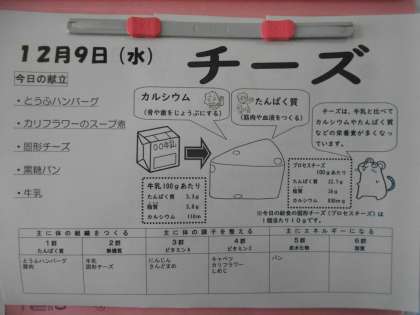 12月9日（水）
チーズ
今日の献立
・とうふハンバーグ
・カリフラワーのスープ煮
・固形チーズ
・黒糖パン
・牛乳
カルシウム
（骨や歯をじょうぶにする）
たんぱく質
（筋肉や血液をつくる）
チーズは、牛乳と比べて
カルシウムやたんぱく質
などの栄養素が多くなっ
ています。
牛乳
牛乳100gあたり
たんぱく質 3.3g
脂質 3.8g
カルシウム 110mg
プロセスチーズ
100gあたり
たんぱく質 22.7g
脂質 26g
カルシウム 630mg
※今日の給食の固形チーズ（プロセスチーズ）は
1個当たり10gです。
主に体の組織をつくる
主に体の調子を整える
主にエネルギーになる
1群 2群 3群 4群 5群 6群
たんぱく質 無機質 ビタミンA ビタミンC 炭水化物 脂質
とうふハンバーグ
豚肉
牛乳
固形チーズ
にんじん
さんどまめ
キャベツ
カリフラワー
しめじ
パン